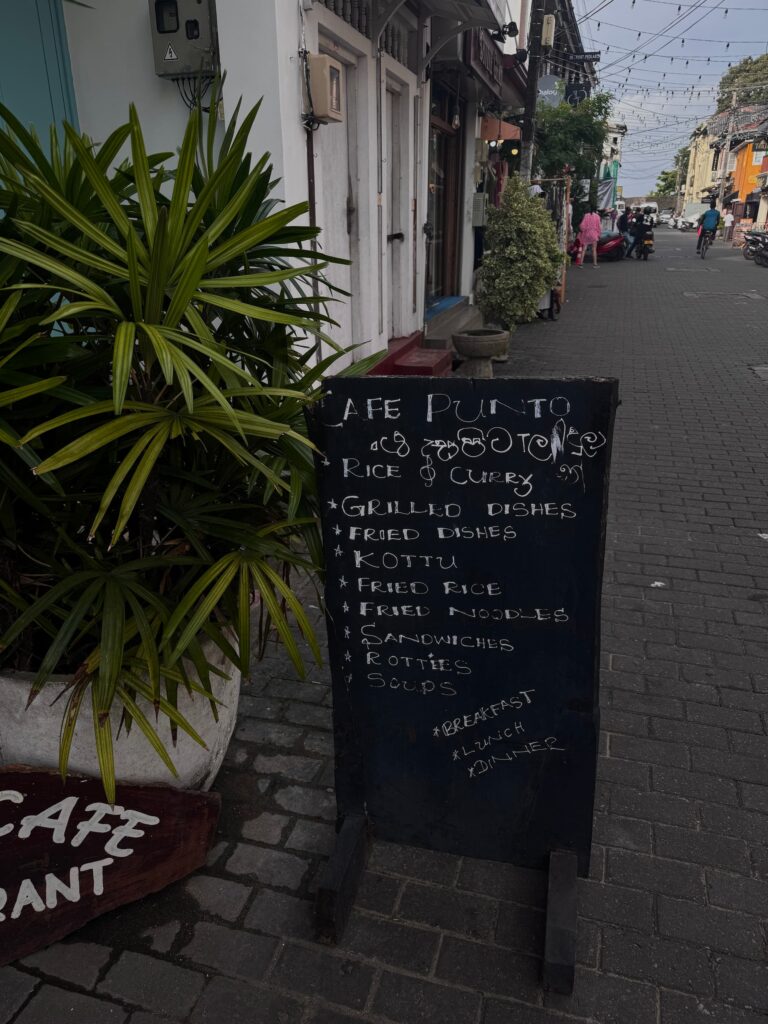 CAFE PUNTO
RICE & CURRY
* GRILLED DISHES
* FRIED DISHES
* KOTTU
* FRIED RICE
* FRIED NOODLES
* SANDWICHES
* ROTTIES
* SOUPS
*BREAKFAST
*LUNCH
*DINNER
CAFE
RANT